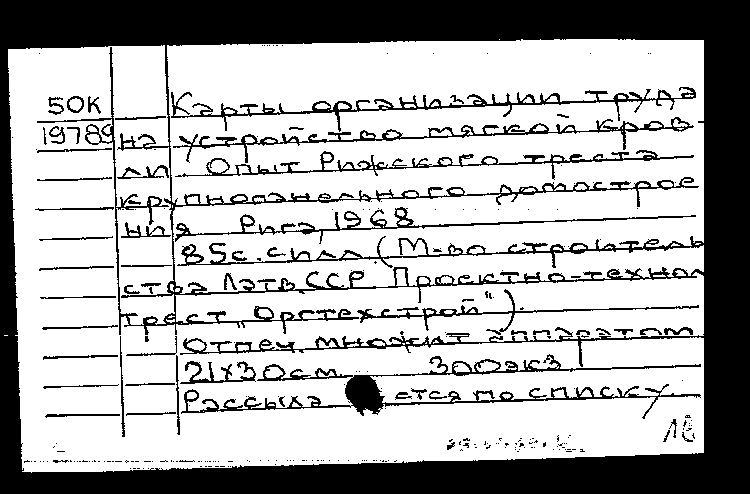 50К Карты организации труда
19789 на устройство мягкой кров-
ли. Опыт Рижского треста
крупнопанельного домострое
ния Рига, 1968.
85с. с илл (М-во строитель
ства Латв. ССР Проектно-технол
трест „Оргтехстрой")
Отпеч. множит аппаратом
21х30см 300экз
Рассыла ется по списку.